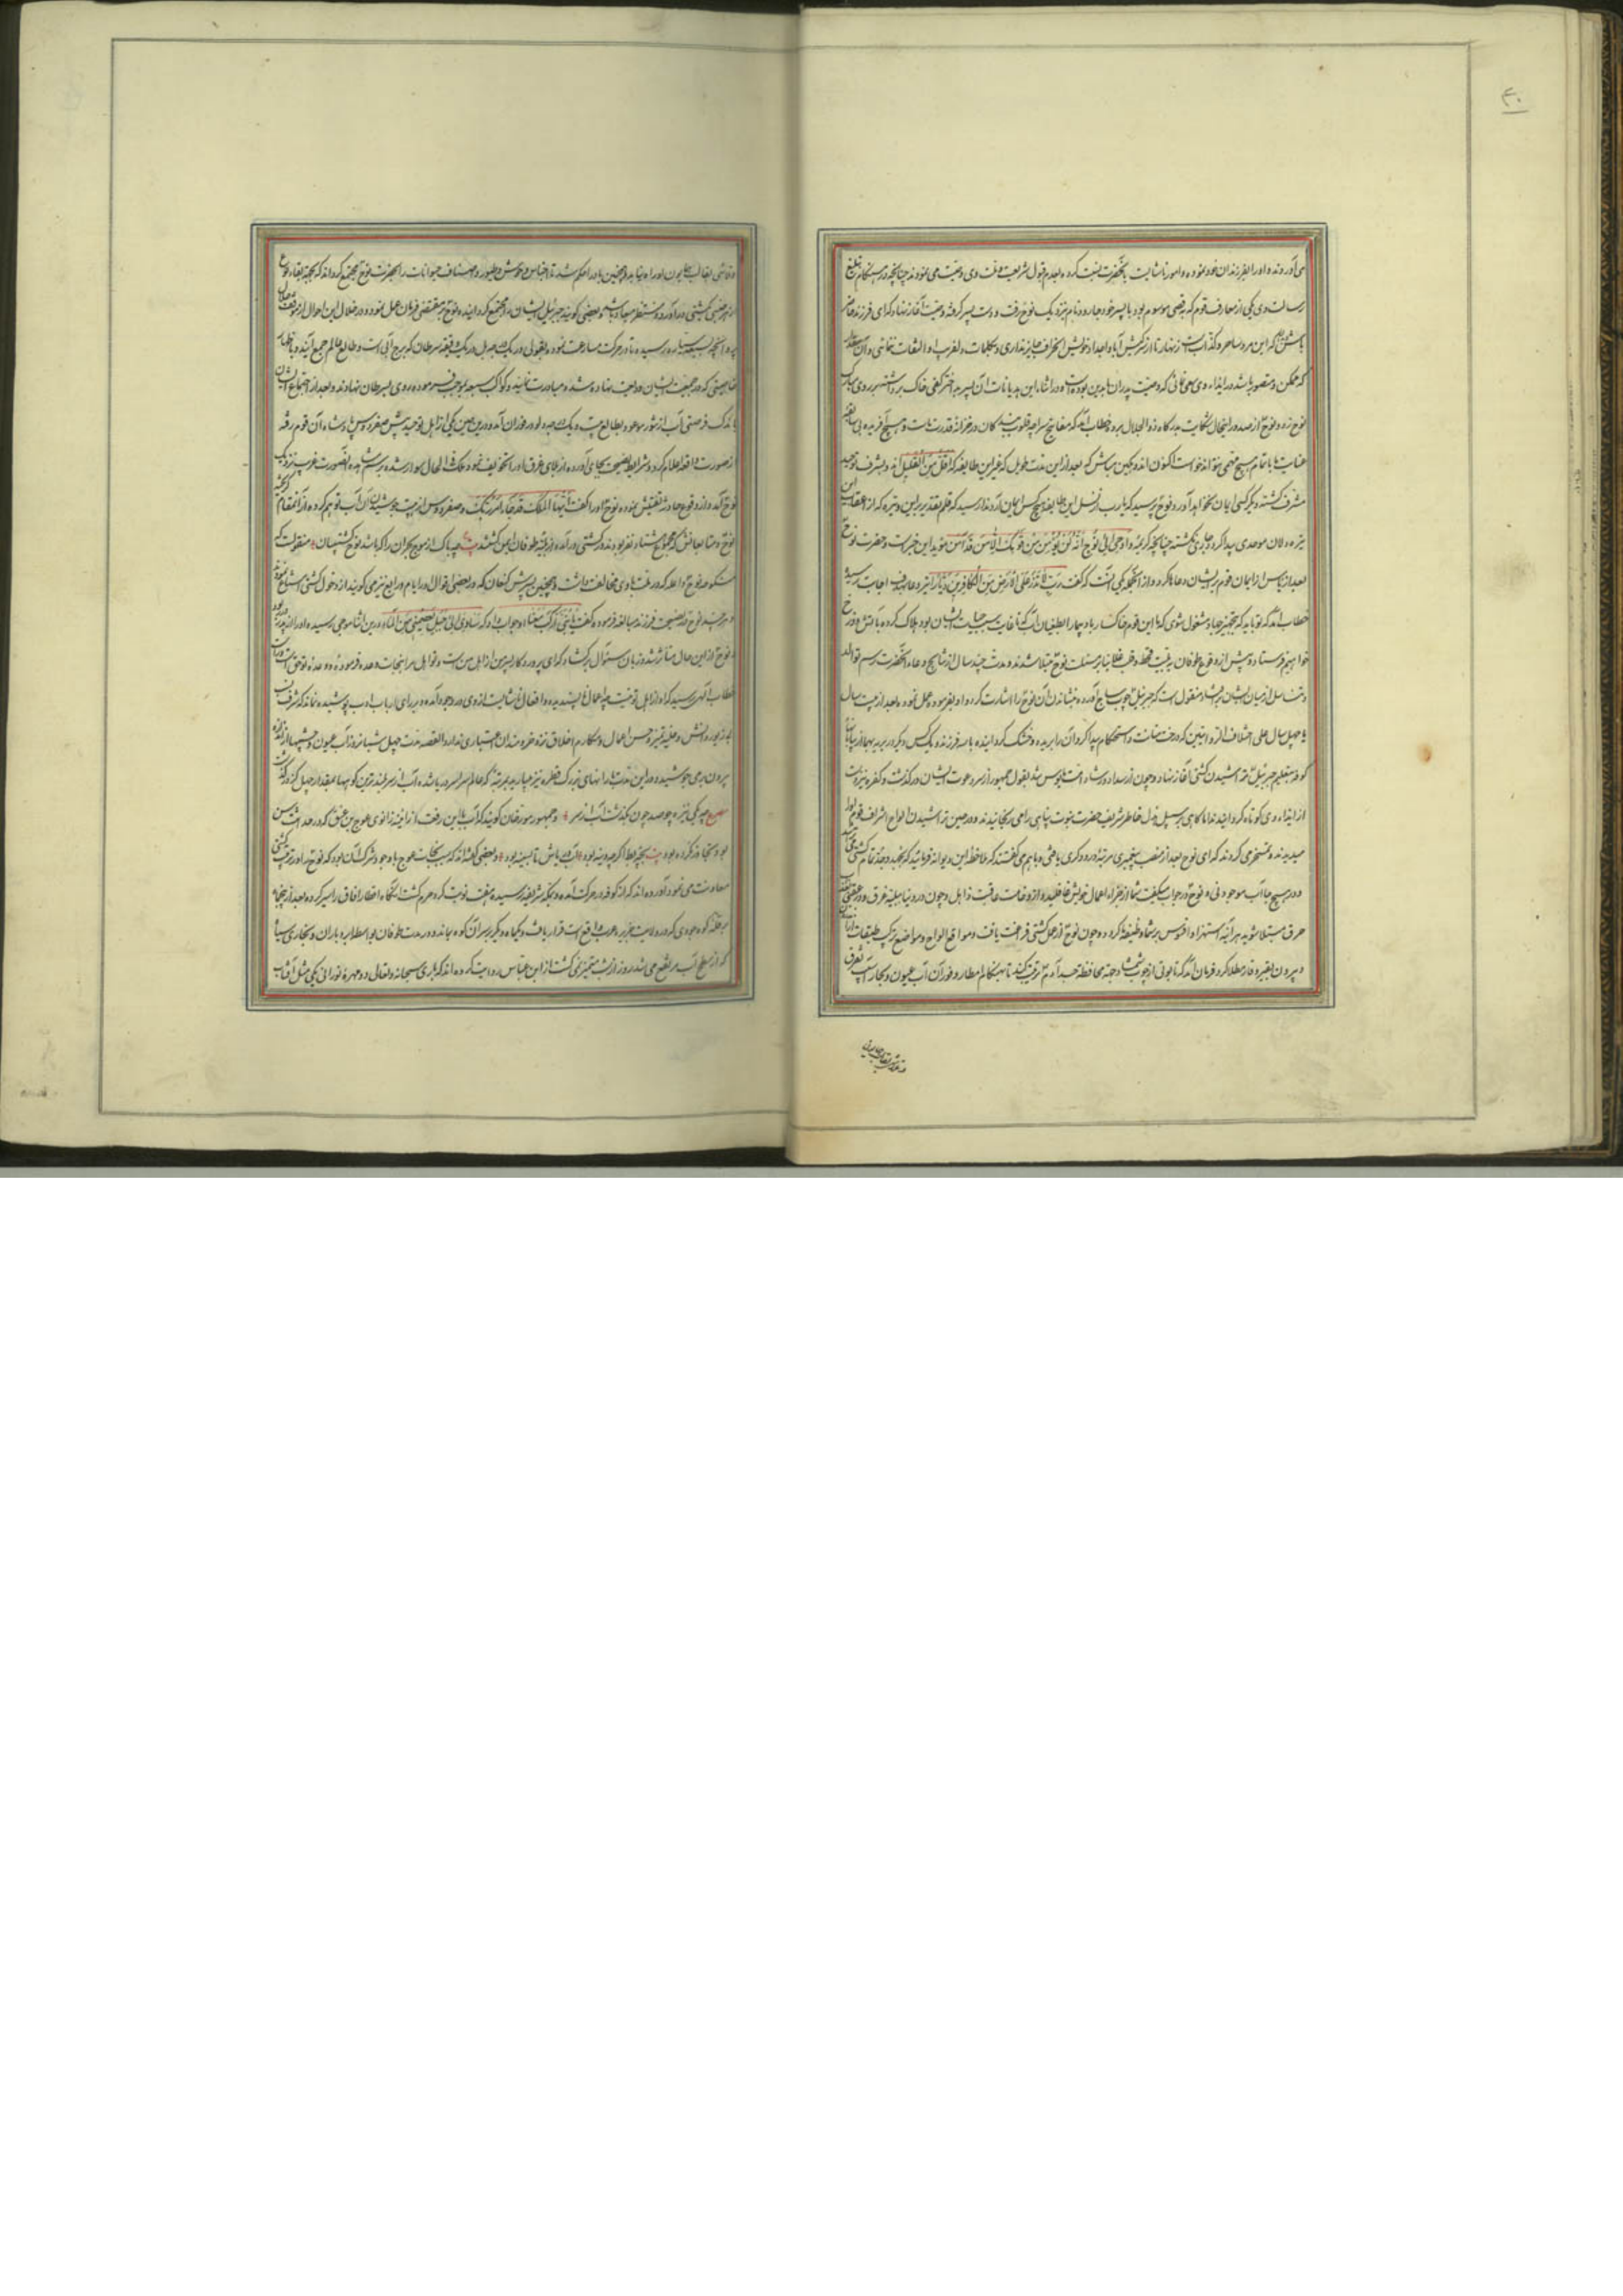 ۴۰
می آوردند و او را بفرزندان خود نموده و امور ناشایست بآنحضرت نسبت کرده بعدم قبول شریعت و ملت وی وصیت می نمودند چنانچه در هنگام تبلیغ
رسالت وی یکی از معارف قوم که بقصی موسوم بود با پسر خود نام نزدیک نوح رفت و دست پسر گرفته وصیت آغاز نهاد که ای فرزند حاضر
باش که این مرد ساحر و کذاب است زنهار تا از کیش آبا و اجداد خویش انحراف جایز نداری و بکلمات او التفات ننمائی و آن مقدار
که ممکن و متصور باشد در ایذاء وی سعی نمائی که وصیت پدران ما بدین بوده است در اثناء این هذیانات آن پسر کفی خاک برداشته بر روی مبارک
نوح زد و نوح از صدور اینحال شکایت بدرگاه ذو الجلال برد خطاب آمد که مفاتیح قلوب بندگان در خزانه قدرت ماست و هیچ آفریده بی سابقه
عنایت ما با تمام هیچ مهمی نتواند خواست اکنون اندوهگین مباش که بعد از این مدت طویل که غیر این طایفه که اقل من القلیل اند بشرف توحید
مشرف گشته دیگر کسی ایمان نخواهد آورد نوح پرسید که یارب از نسل این طایفه هیچ کس ایمان آرد ندا رسید که قلم تقدیر بر این وتیره که از اعقاب این
تیره دلان موحدی پیدا نگردد جاری گشته چنانچه کریمه و اوحی الی نوح انه لن یؤمن من قومک الا من قد آمن موید این خبر است و حضرت نوح
بعد از یاس از ایمان قوم بر ایشان دعا کرد و از آنجمله یکی آنست که گفت رب لا تذر علی الارض من الکافرین دیارا تیر دعا بهدف اجابت رسید
خطاب آمد که تو باید که بتجهیز جهاد مشغول شوی که ما این قوم خاکسار بادپیما را بطغیان آب که تا غایت سبب حیات ایشان بود هلاک کرده بآتش دوزخ
خواهیم فرستاد و پیش از وقوع طوفان ببلیت قحط و غلا بنابر مسئلت نوح مبتلا شدند و مدت چند سال از نتایج دعاء آنحضرت رسم توالد
و تناسل از میان ایشان برافتاد منقول است که جبرئیل چوب ساج آورده بنشاندن آن نوح را اشارت کرد و او بفرموده عمل نمود و بعد از بیست سال
یا چهل سال علی اختلاف الروایتین که درخت متانت و استحکام پیدا کرد آن را بریده و خشک گردانیده با سه فرزند و یک کس دیگر
کوفه بتعلیم جبرئیل تراشیدن کشتی آغاز نهاد و چون از سداد و رشاد امت مایوس شد بقول جمهور از سر دعوت ایشان درگذشت و کفره نیز دست
از ایذاء وی کوتاه گردانیدند اما گاهی بر سبیل هزل خاطر شریف حضرت نبوت پناهی را می رنجانیدند و در حین تراشیدن الواح اشراف قوم او را
میدیدند و تمسخر می کردند که ای نوح بعد از منصب پیغمبری مرتبه درودگری یافتی و باهم می گفتند که ملاحظه این دیوانه فرمائید
و در هیچ جا آب موجود نی و نوح در جواب میگفت شما از جزاء اعمال خویش غافلید و از وخامت عاقبت ذاهل و چون در دنیا ببلیه غرق و در عقبی
حرق مبتلا شوید هر آینه استهزاء و افسوس بر شما وظیفه گردد و چون نوح از عمل کشتی فراغت یافت و مواقع الواح و مواضع ترکیب طبقات
و بیرون بقیر و قار مطلا کرد فرمان آمد که تابوتی از چوب شمشاد جهه محافظت جسد آدم ترتیب کند تا هنگام امطار و فوران آب عیون و بحار آسیب تفرق
و تلاشی بقالب همایون او راه نیابد و همچنین باد را حکم شد تا اجناس وحوش و طیور و اصناف حیوانات را بحضرت نوح مجتمع گرداند که بجهه ابقاء نوع
از هر جنسی بکشتی درآورد و منتظر میعاد باشد و بعضی گویند جبرئیل ایشان را مجتمع گردانید و نوح بر مقتضی فرمان عمل نمود و در خلال این احوال
که در جمعیت ایشان ودیعت نهاده شده مبادرت نمایند و کواکب سبعه بموجب فرموده روی بسرطان نهادند و بعد از اجتماع ایشان
باندک فرصتی آب از تنور موعود بطالع بیست و یک درجه دلو در فوران آمد و درین حین یکی از اهل توحید پیش صفردوس پادشاه آن قوم رفته
از صورت واقعه اعلام کرد و شرایط نصیحت بجای آورده از بلای غرق او را تخویف نمود ملک فی الحال سوار شده برسم مشاهده آنصورت غریب نزدیک
نوح آمد و از وقوع حادثه تفتیش نموده نوح او را گفت ایها الملک قد جاء امر ربک و صفردوس از هیبت جوشیدن آن آب توهم کرده از آنمقام گریخته
نوح و متابعانش که مجموع هشتاد نفر بودند در کشتی درآمده از بلیه طوفان ایمن گشتند بیت چه باک از موج بحر آن را که باشد نوح کشتیبان منقولست که
منکوحه نوح واعله که در ملت با وی مخالفت داشت و همچنین پسرش کنعان که در بعضی اقوال او را یام و رایع نیز می گویند از دخول کشتی امتناع نمودند
و هر چند نوح در نصیحت فرزند مبالغه فرموده گفت یا بنی ارکب معنا او جواب داد که سآوی الی جبل یعصمنی من الماء و درین اثنا موجی رسیده او را از پدر ربود
و نوح از این حال متأثر شده زبان سئوال برگشاد که ای پروردگار پسر من از اهل من است و تو اهل مرا بنجات وعده فرموده و وعده تو حق است و راست
خطاب الهی رسید که او از اهل تو نیست چه اعمال ناپسندیده و افعال ناشایست از وی در وجود آمده و بر رای ارباب ادب پوشیده نماند که شرف نسب
بی زیور دانش و حلیه تمیز و حسن اعمال و مکارم اخلاق نزد خردمندان اعتباری ندارد القصه مدت چهل شبانروز آب عیون و چشمها از زمین
بیرون می جوشید و در این مدت بارانهای بزرگ قطره نیز میبارید بمرتبه که عالم سراسر دریا شده آب از سر بلندترین کوهها بمقدار چهل گز درگذشت
مصرع چه یکی نیزه چو صد چون بگذشت آب از سر و جمهور مورخان گویند که آب با این رفعت از آینه زانوی عوج بن عنق که در حداثت سن
بود تجاوز نکرده بود بیت بچه بط اگرچه دینه بود آب دریاش تا بسینه بود و بعضی گفته اند که سبب نجات عوج با وجود شرک آن بود که نوح را در ترتیب کشتی
معاونت می نمود آورده اند که از کوفه در حرکت آمد و بمکه شریفه رسیده هفت نوبت گرد حرم گشت آنگاه اقطار آفاق را سیر کرده بعد از پنجماه
بر قله کوه جودی که در ولایت جزیره واقع است قرار یافت و یکماه دیگر بر سر آن کوه بماند و در مدت طوفان بواسطه ابر و باران و بخاری سیاه
که از سطح آب مرتفع می شد روز از شب متمیز نمی گشت از ابن عباس روایت کرده اند که باری سبحانه و تعالی دو مهره نورانی یکی مثل آفتاب